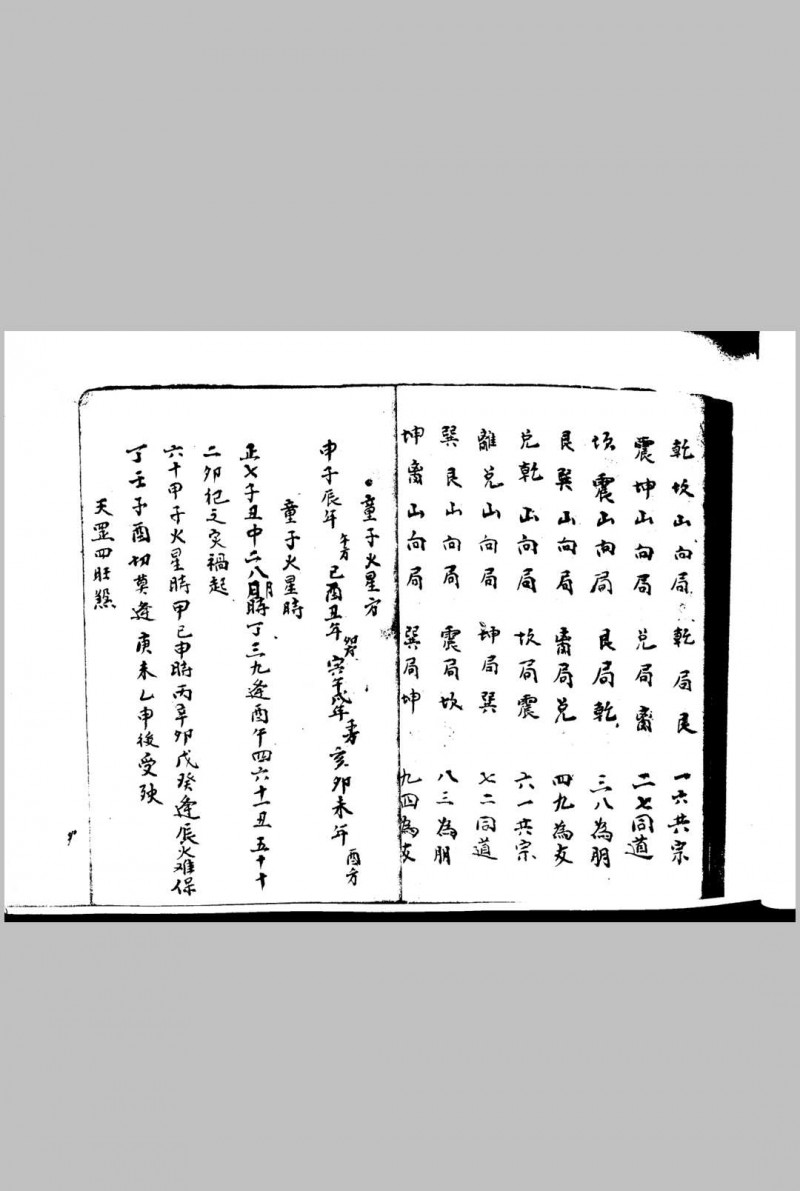 乾坎山向局　乾局艮　一六共宗
震坤山向局　兌局离　二七同道
坎震山向局　艮局乾　三八為朋
艮巽山向局　离局兌　四九為友
兌乾山向局　坎局震　六一共宗
離兌山向局　坤局巽　七二同道
巽艮山向局　震局坎　八三為朋
坤离山向局　巽局坤　九四為友
童子火星方
申子辰年 午方 巳酉丑年 寅午戌年 亥卯未年 酉方
童子火星時
正七子丑中二八月時丁三九逢酉午四六十一丑五十十
二卯犯之灾禍起
六十甲子火星時甲己申時丙辛卯戊癸逢辰火难保
丁壬子酉切莫逢庚未乙申後受殃
天罡四旺煞